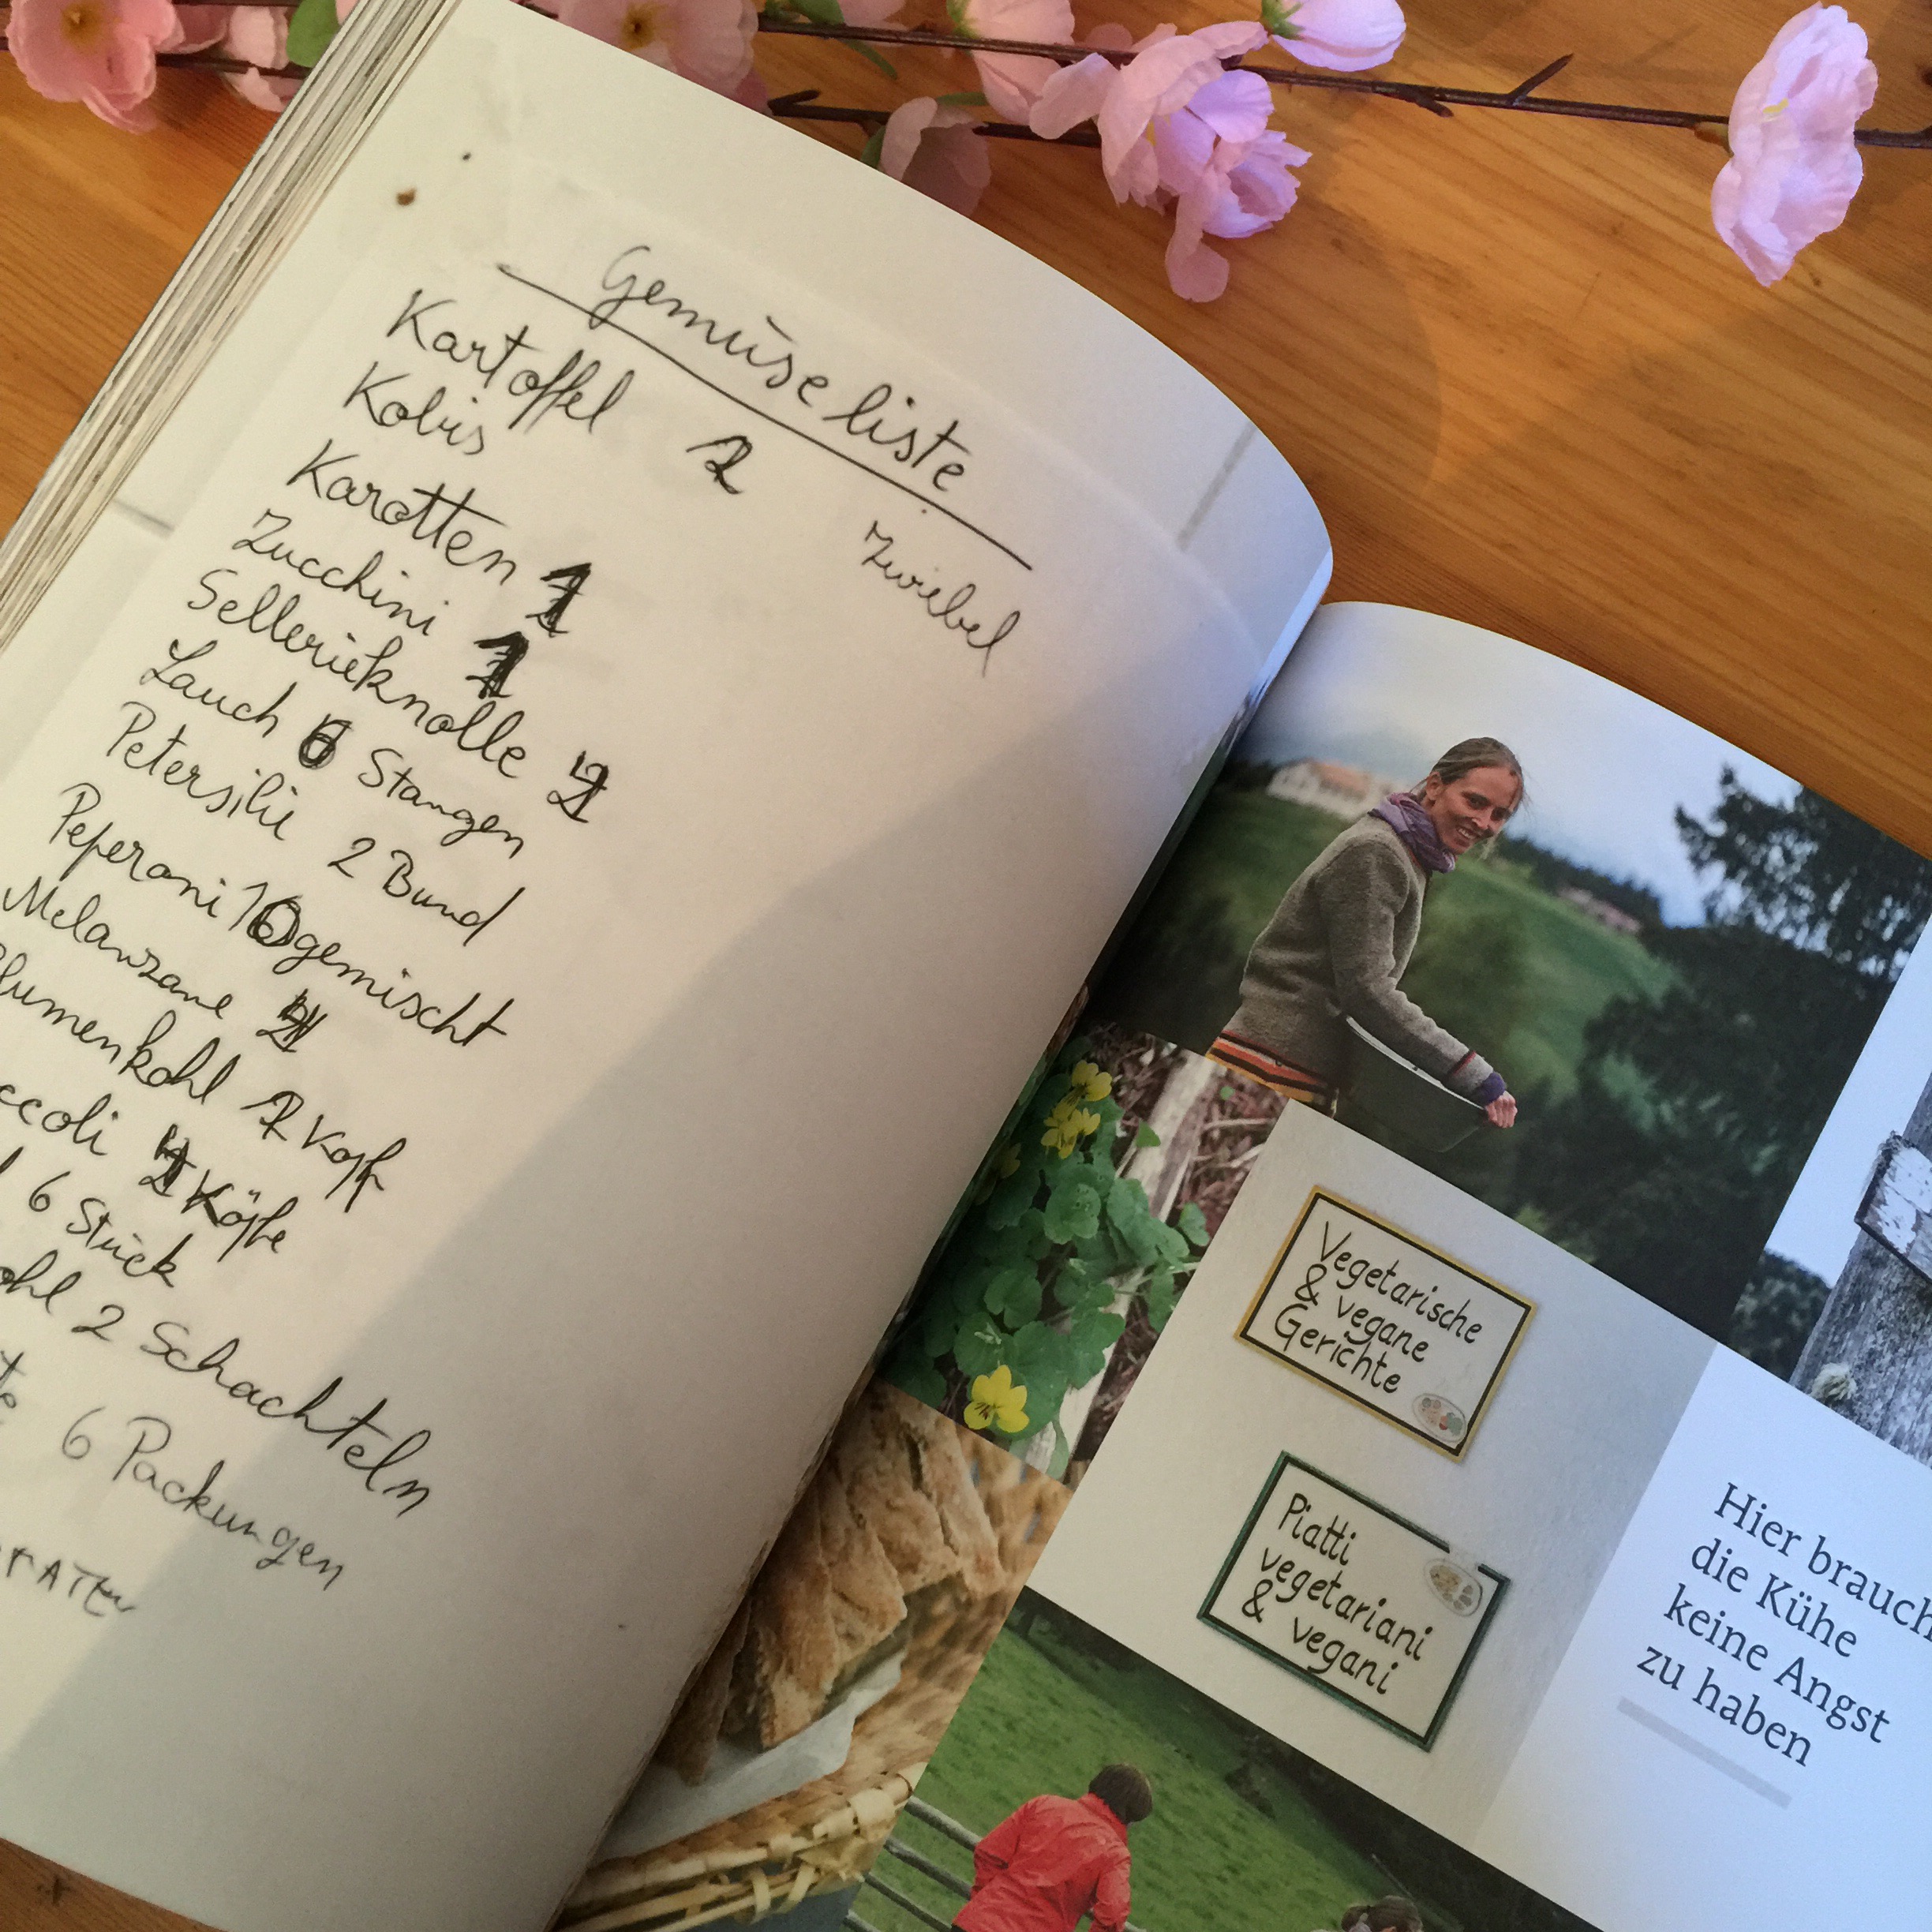 Gemüse liste
Kartoffel
Zwiebel
Kobis
Karotten 1
Zucchini 1
Sellerieknolle
Lauch Stangen
Petersilie 2 Bund
Peperoni gemischt
Melanzane
lumenkohl Kopf
ccoli Köpfe
6 Stück
ohl 2 Schachteln
te 6 Packungen
Vegetarische
& vegane
Gerichte
Piatti
vegetariani
& vegani
Hier brauch
die Kühe
keine Angst
zu haben